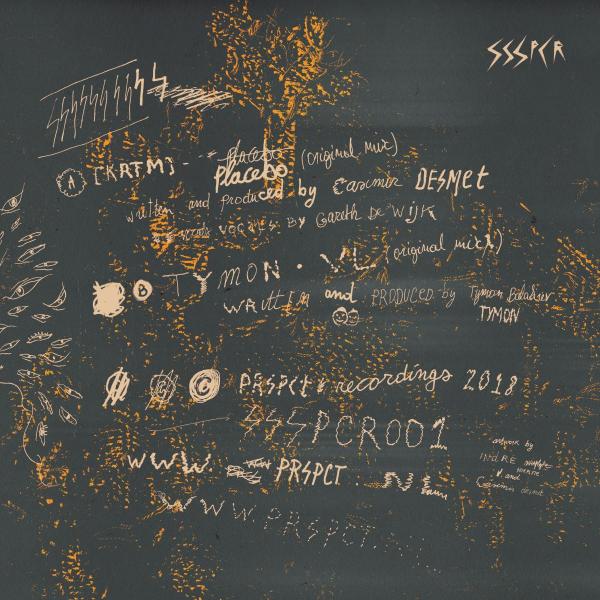 SSSPCR
A [KRTM] -- placebo (original mix)
placebo
written and produced by Casimir DESMET
VOCALS BY Gareth DE WIJK
B TYMON · VL (original mix)
WRITTEN and PRODUCED by Tymon
TYMON
© PRSPCT recordings 2018
SSSPCR001
WWW. PRSPCT.NL
WWW.PRSPCT.NL
artwork by
and
Casimir desmet